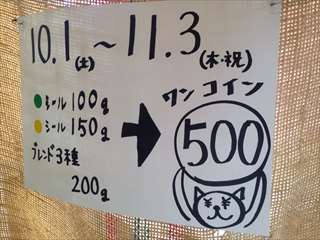 10.1(土)〜11.3(木・祝)
シール 100g
シール 150g
ブレンド3種
200g
ワンコイン
500
¥ ¥